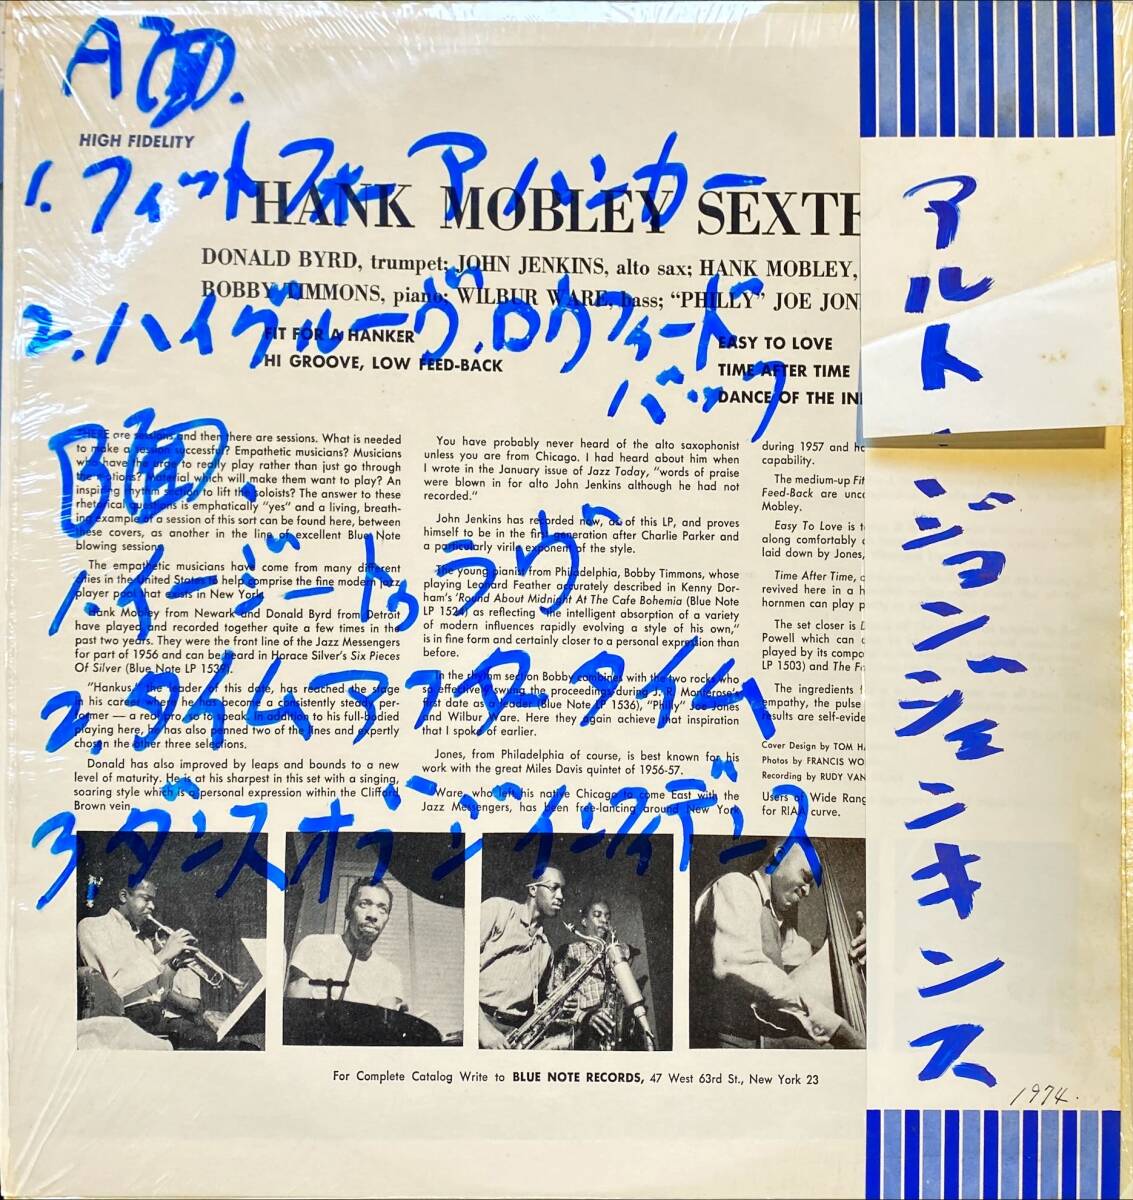 A面.
HIGH FIDELITY
1.フィットフォーアハンカー
HANK MOBLEY SEXTE
DONALD BYRD, trumpet; JOHN JENKINS, alto sax; HANK MOBLEY,
BOBBY TIMMONS, piano; WILBUR WARE, bass; “PHILLY” JOE JON
2.ハイグルーヴ.ロウフィードバック
FIT FOR A HANKER
HI GROOVE, LOW FEED-BACK
EASY TO LOVE
TIME AFTER TIME
DANCE OF THE IN
B面.
1.イージートゥラヴ
2.タイムアフタータイム
3.ダンスオブジインフィデース
THERE are sessions and then there are sessions. What is needed
to make a session successful? Empathetic musicians? Musicians
who have the urge to really play rather than just go through
the motions? Material which will make them want to play? An
inspiring rhythm section to lift the soloists? The answer to these
rhetorical questions is emphatically "yes" and a living, breath-
ing example of a session of this sort can be found here, between
these covers, as another in the line of excellent Blue Note
blowing sessions.
The empathetic musicians have come from many different
cities in the United States to help comprise the fine modern jazz
player pool that exists in New York.
Hank Mobley from Newark and Donald Byrd from Detroit
have played and recorded together quite a few times in the
past two years. They were the front line of the Jazz Messengers
for part of 1956 and can be heard in Horace Silver's Six Pieces
Of Silver (Blue Note LP 1539).
"Hankus," the leader of this date, has reached the stage
in his career where he has become a consistently steady per-
former — a real pro so to speak. In addition to his full-bodied
playing here, he has also penned two of the lines and expertly
chosen the other three selections.
Donald has also improved by leaps and bounds to a new
level of maturity. He is at his sharpest in this set with a singing,
soaring style which is a personal expression within the Clifford
Brown vein.
You have probably never heard of the alto saxophonist
unless you are from Chicago. I had heard about him when
I wrote in the January issue of Jazz Today, "words of praise
were blown in for alto John Jenkins although he had not
recorded."
John Jenkins has recorded now, as of this LP, and proves
himself to be in the first generation after Charlie Parker and
a particularly virile exponent of the style.
The young pianist from Philadelphia, Bobby Timmons, whose
playing Leonard Feather accurately described in Kenny Dor-
ham's 'Round About Midnight At The Cafe Bohemia (Blue Note
LP 1524) as reflecting "the intelligent absorption of a variety
of modern influences rapidly evolving a style of his own,"
is in fine form and certainly closer to a personal expression than
before.
In the rhythm section Bobby combines with the two rocks who
so effectively swung the proceedings during J. R. Monterose's
first date as a leader (Blue Note LP 1536), "Philly" Joe Jones
and Wilbur Ware. Here they again achieve that inspiration
that I spoke of earlier.
Jones, from Philadelphia of course, is best known for his
work with the great Miles Davis quintet of 1956-57.
Ware who left his native Chicago to come East with the
Jazz Messengers, has been free-lancing around New Yor
during 1957 and ha
capability.
The medium-up Fit
Feed-Back are unc
Mobley.
Easy To Love is t
along comfortably
laid down by Jones,
Time After Time,
revived here in a h
hornmen can play p
The set closer is
Powell which can
played by its compo
LP 1503) and The Fr
The ingredients
empathy, the pulse
results are self-evide
Cover Design by TOM HA
Photos by FRANCIS WO
Recording by RUDY VAN
Users of Wide Rang
for RIAA curve.
For Complete Catalog Write to BLUE NOTE RECORDS, 47 West 63rd St., New York 23
アルト・ジョン・ジェンキンス
1974.